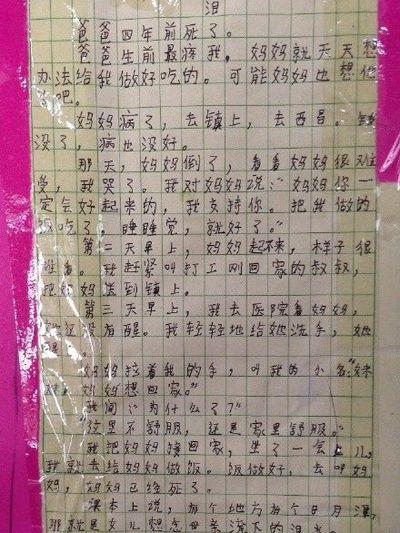 泪
爸爸四年前死了。
爸爸生前最疼我，妈妈就天天想
办法给我做好吃的。可能妈妈也想他
了吧。
妈妈病了，去镇上，去西昌。钱
没了，病也没好。
那天，妈妈倒了，看着妈妈很难
受，我哭了。我对妈妈说：“妈妈你一
定会好起来的，我支持你。把我做的
饭吃了，睡睡觉，就好了。”
第二天早上，妈妈起不来，样子很
难看。我赶紧叫打工刚回家的叔叔，
把妈妈送到镇上。
第三天早上，我去医院看妈妈，
她还没有醒。我轻轻地给她洗手，她
醒了。
妈妈拉着我的手，叫我的小名“妹
妈妈想回家。”
我问：“为什么了？”
“这里不舒服，还是家里舒服。”
我把妈妈接回家，坐了一会儿，
我就去给妈妈做饭。饭做好，去叫妈
妈，妈妈已经死了。
课本上说，有个地方有个日月潭，
那就是女儿想念母亲流下的泪水。